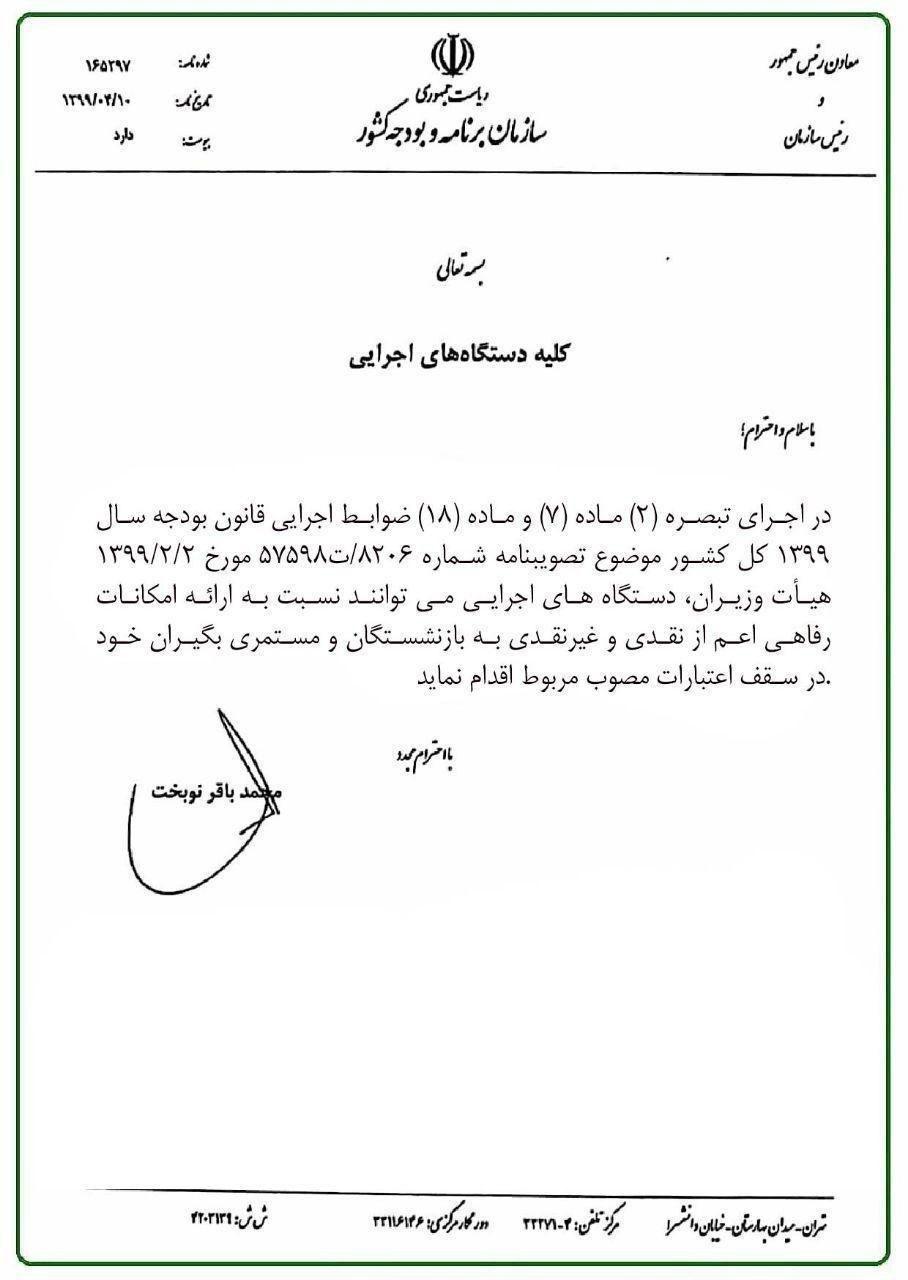 معاون رئیس جمهور
و
رئیس سازمان
ریاست جمهوری
سازمان برنامه و بودجه کشور
شماره نامه: ۱۶۵۲۹۷
تاریخ نامه: ۱۳۹۹/۰۴/۱۰
پیوست: دارد
بسمه تعالی
کلیه دستگاه‌های اجرایی
با سلام و احترام؛
در اجرای تبصره (۲) ماده (۷) و ماده (۱۸) ضوابط اجرایی قانون بودجه سال
۱۳۹۹ کل کشور موضوع تصویبنامه شماره ۸۲۰۶/ت۵۷۵۹۸ مورخ ۱۳۹۹/۲/۲
هیأت وزیران، دستگاه های اجرایی می توانند نسبت به ارائه امکانات
رفاهی اعم از نقدی و غیرنقدی به بازنشستگان و مستمری بگیران خود
.در سقف اعتبارات مصوب مربوط اقدام نماید
با احترام مجدد
محمد باقر نوبخت
تهران-میدان بهارستان-خیابان دانشسرا مرکز تلفن: ۴-۳۳۲۷۱ دورنگار مرکزی: ۳۳۱۱۶۱۴۶ ش ش: ۴۲۰۳۱۳۹